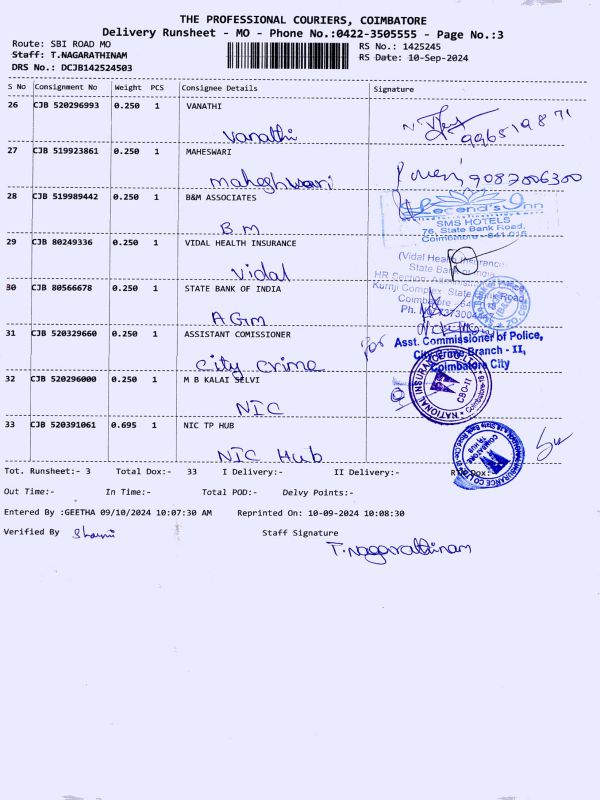 THE PROFESSIONAL COURIERS, COIMBATORE
Delivery Runsheet - MO - Phone No.:0422-3505555 - Page No.:3
Route: SBI ROAD MO
RS No.: 1425245
Staff: T.NAGARATHINAM
RS Date: 10-Sep-2024
DRS No.: DCJB142524503
S No Consignment No Weight PCS Consignee Details Signature
26 CJB 520296993 0.250 1 VANATHI
Vanathi
27 CJB 519923861 0.250 1 MAHESWARI
maheshwari 9087006300
28 CJB 519989442 0.250 1 B&M ASSOCIATES
Legend's Inn
SMS HOTELS
76, State Bank Road,
Coimbatore - 641 018
B.M
29 CJB 80249336 0.250 1 VIDAL HEALTH INSURANCE
(Vidal Health Insurance
State Bank of India
HR Section, Administrative Office
Kurinji Complex, State Bank Road,
Coimbatore
Vidal
30 CJB 80566678 0.250 1 STATE BANK OF INDIA
AGM
31 CJB 520329660 0.250 1 ASSISTANT COMISSIONER
for Asst. Commissioner of Police,
City Crime Branch - II,
Coimbatore City
City crime
32 CJB 520296000 0.250 1 M B KALAI SELVI
NATIONAL INSURANCE CO. LTD
CBO-II
NIC
33 CJB 520391061 0.695 1 NIC TP HUB
NIC Hub
Tot. Runsheet:- 3 Total Dox:- 33 I Delivery:- II Delivery:- RTO Dox:-
Out Time:- In Time:- Total POD:- Delvy Points:-
Entered By :GEETHA 09/10/2024 10:07:30 AM Reprinted On: 10-09-2024 10:08:30
Verified By Staff Signature
T.Nagarathinam